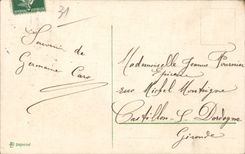 31
Souvenir de
Germaine Caro
Mademoiselle Jeanne Fournier
Epicerie
rue Michel Montaigne
Castillon s. Dordogne
Gironde